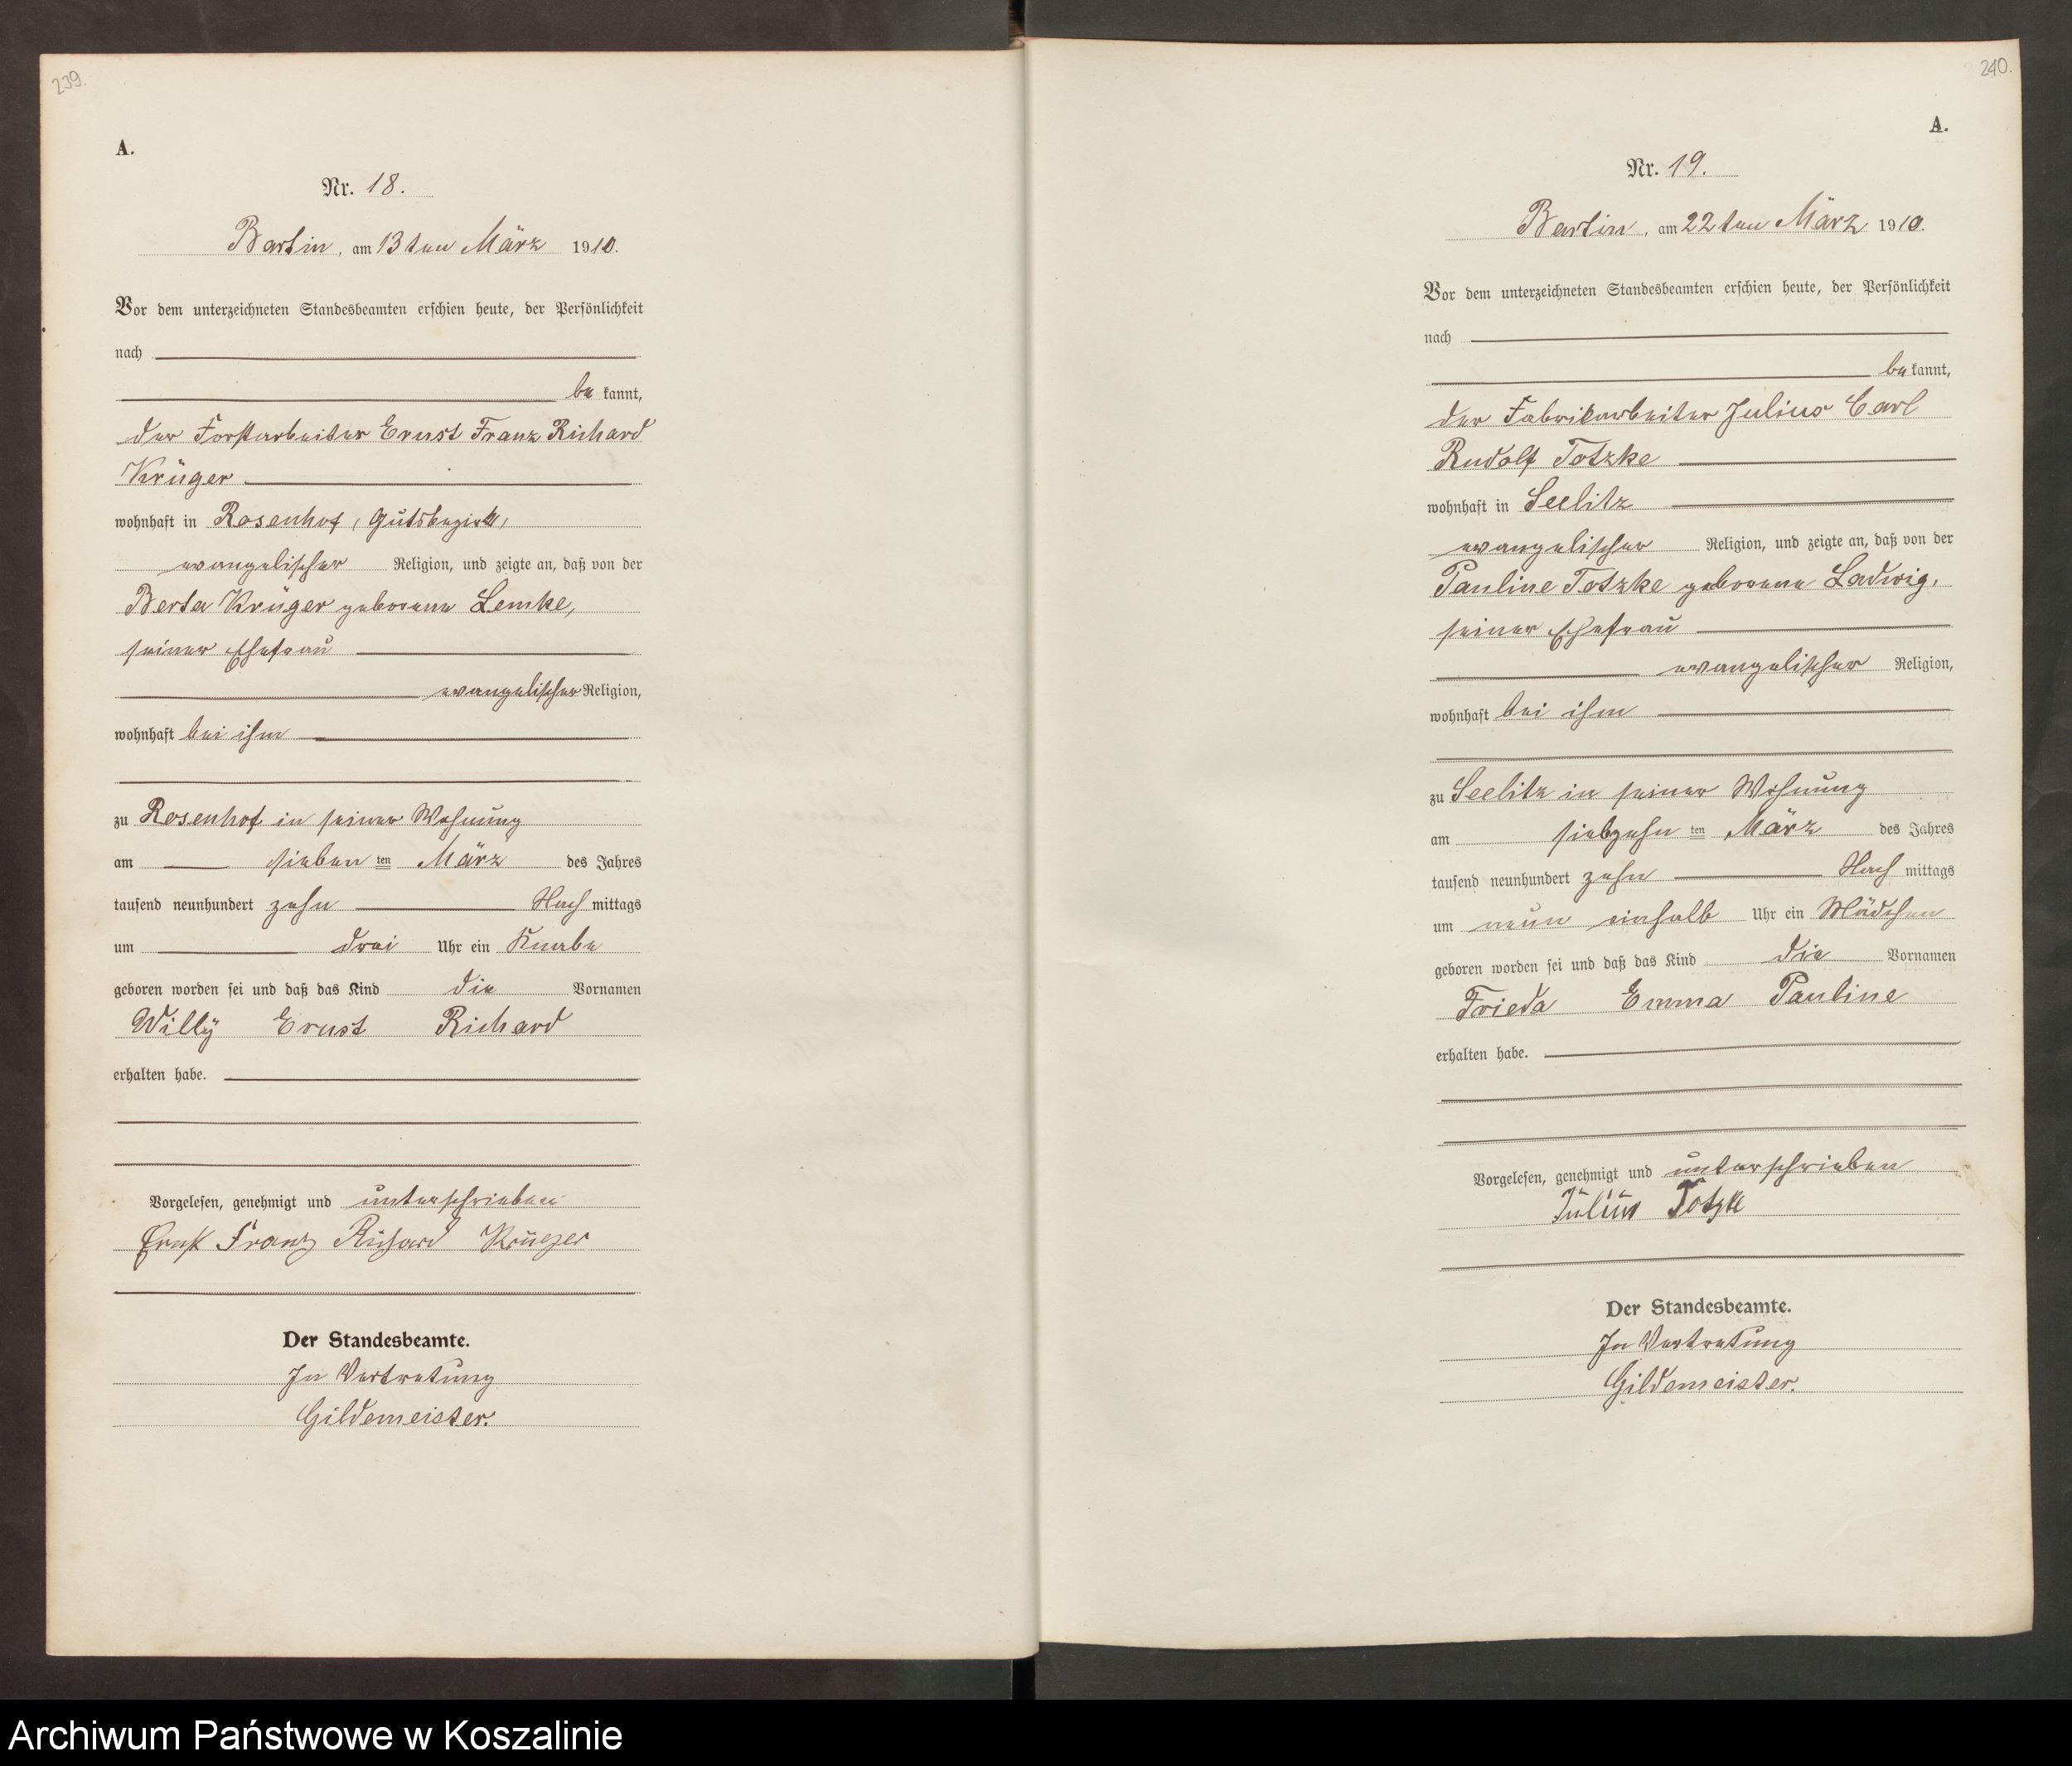 239.
A.
Nr. 18.
Bartin, am 13ten März 1910.
Vor dem unterzeichneten Standesbeamten erschien heute, der Persönlichkeit
nach
be kannt,
der Forstarbeiter Ernst Franz Richard
Krüger
wohnhaft in Rosenhof, Gutsbezirk,
evangelischer Religion, und zeigte an, daß von der
Berta Krüger geborene Lemke,
seiner Ehefrau
evangelischer Religion,
wohnhaft bei ihm
zu Rosenhof in seiner Wohnung
am sieben ten März des Jahres
tausend neunhundert zehn Nach mittags
um drei Uhr ein Knabe
geboren worden sei und daß das Kind die Vornamen
Willy Ernst Richard
erhalten habe.
Vorgelesen, genehmigt und unterschrieben
Ernst Franz Richard Krüeger
Der Standesbeamte.
In Vertretung
Gildemeister.
240.
A.
Nr. 19.
Bartin, am 22ten März 1910.
Vor dem unterzeichneten Standesbeamten erschien heute, der Persönlichkeit
nach
be kannt,
der Fabrikarbeiter Julius Carl
Rudolf Totzke
wohnhaft in Seelitz
evangelischer Religion, und zeigte an, daß von der
Pauline Totzke geborene Ladwig,
seiner Ehefrau
evangelischer Religion,
wohnhaft bei ihm
zu Seelitz in seiner Wohnung
am siebzehn ten März des Jahres
tausend neunhundert zehn Nach mittags
um neun einhalb Uhr ein Mädchen
geboren worden sei und daß das Kind die Vornamen
Frieda Emma Pauline
erhalten habe.
Vorgelesen, genehmigt und unterschrieben
Julius Totzke
Der Standesbeamte.
In Vertretung
Gildemeister.
Archiwum Państwowe w Koszalinie